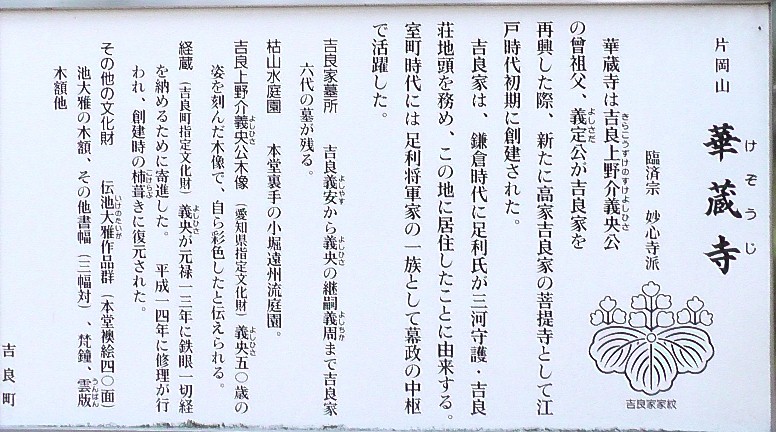 片岡山 華蔵寺
けぞうじ
臨済宗 妙心寺派
吉良家家紋
華蔵寺は吉良上野介義央公
きらこうずけのすけよしひさ
の曾祖父、義定公が吉良家を
よしさだ
再興した際、新たに高家吉良家の菩提寺として江
戸時代初期に創建された。
吉良家は、鎌倉時代に足利氏が三河守護・吉良
荘地頭を務め、この地に居住したことに由来する。
室町時代には足利将軍家の一族として幕政の中枢
で活躍した。
吉良家墓所 吉良義安から義央の継嗣義周まで吉良家
よしやす よしひさ よしちか
六代の墓が残る。
枯山水庭園 本堂裏手の小堀遠州流庭園。
吉良上野介義央公木像(愛知県指定文化財)義央五〇歳の
よしひさ よしひさ
姿を刻んだ木像で、自ら彩色したと伝えられる。
経蔵(吉良町指定文化財)義央が元禄一三年に鉄眼一切経
よしひさ
を納めるために寄進した。 平成一四年に修理が行
われ、創建時の杮葺きに復元された。
こけらぶ
その他の文化財 伝池大雅作品群(本堂襖絵四〇面)
いけのたいが
池大雅の木額、その他書幅(三幅対)、梵鐘、雲版
うんばん
木額他
吉良町